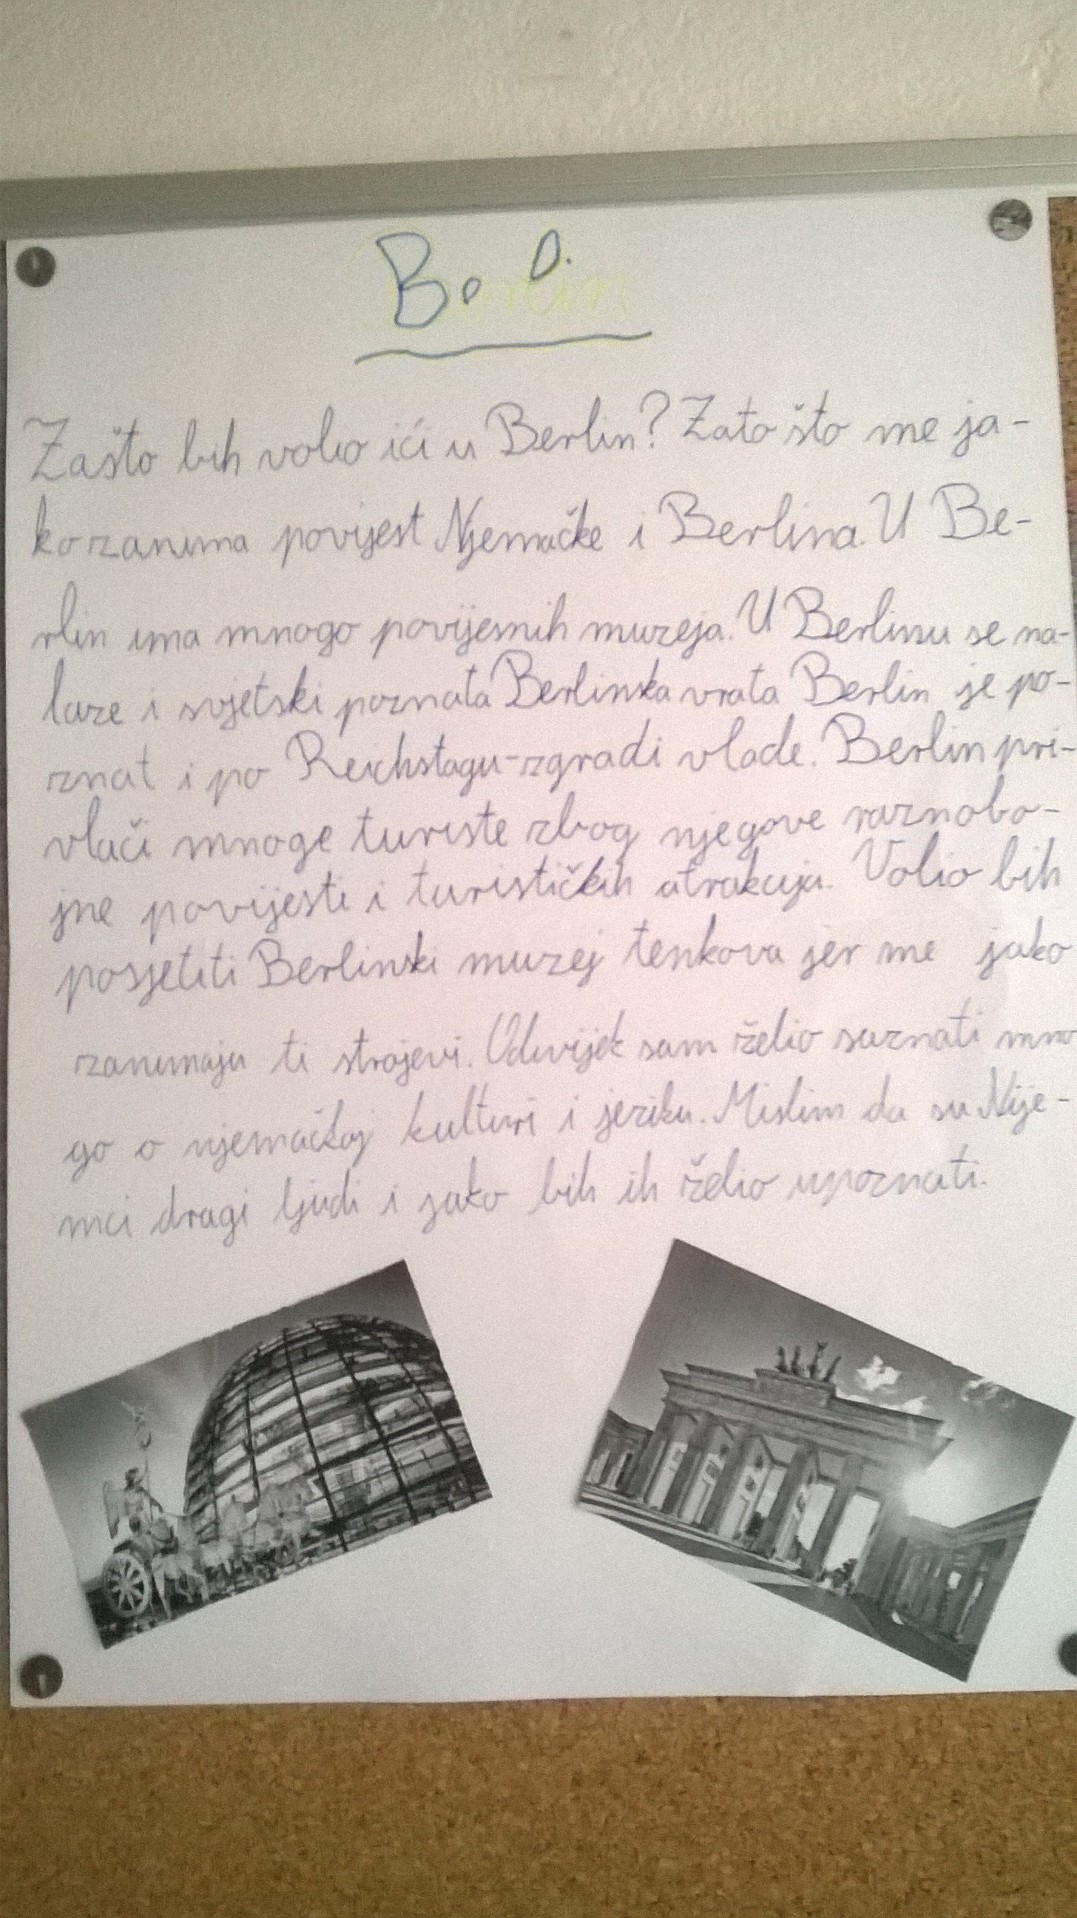 Berlin
Zašto bih volio ići u Berlin? Zato što me ja-
ko zanima povijest Njemačke i Berlina. U Be-
rlin ima mnogo povijesnih muzeja. U Berlinu se na-
laze i svjetski poznata Berlinska vrata Berlin je po-
znat i po Reichstagu-zgradi vlade. Berlin pri-
vlači mnoge turiste zbog njegove raznobo-
jne povijesti i turističkih atrakcija. Volio bih
posjetiti Berlinski muzej tenkova jer me jako
zanimaju ti strojevi. Odvijek sam želio saznati mno
go o njemačkoj kulturi i jeziku. Mislim da su Nije-
mci dragi ljudi i jako bih ih želio upoznati.